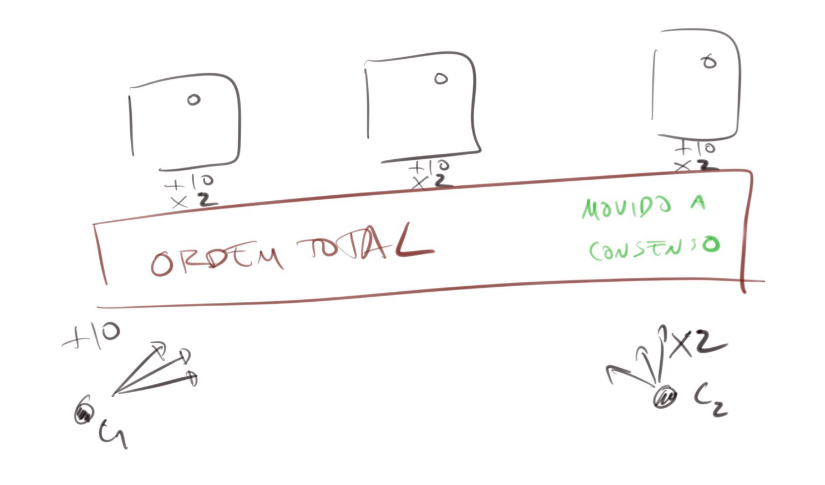 0
0
0
+10
x2
+10
x2
+10
x2
ORDEM TOTAL
MOVIDO A
CONSENSO
+10
C1
x2
C2